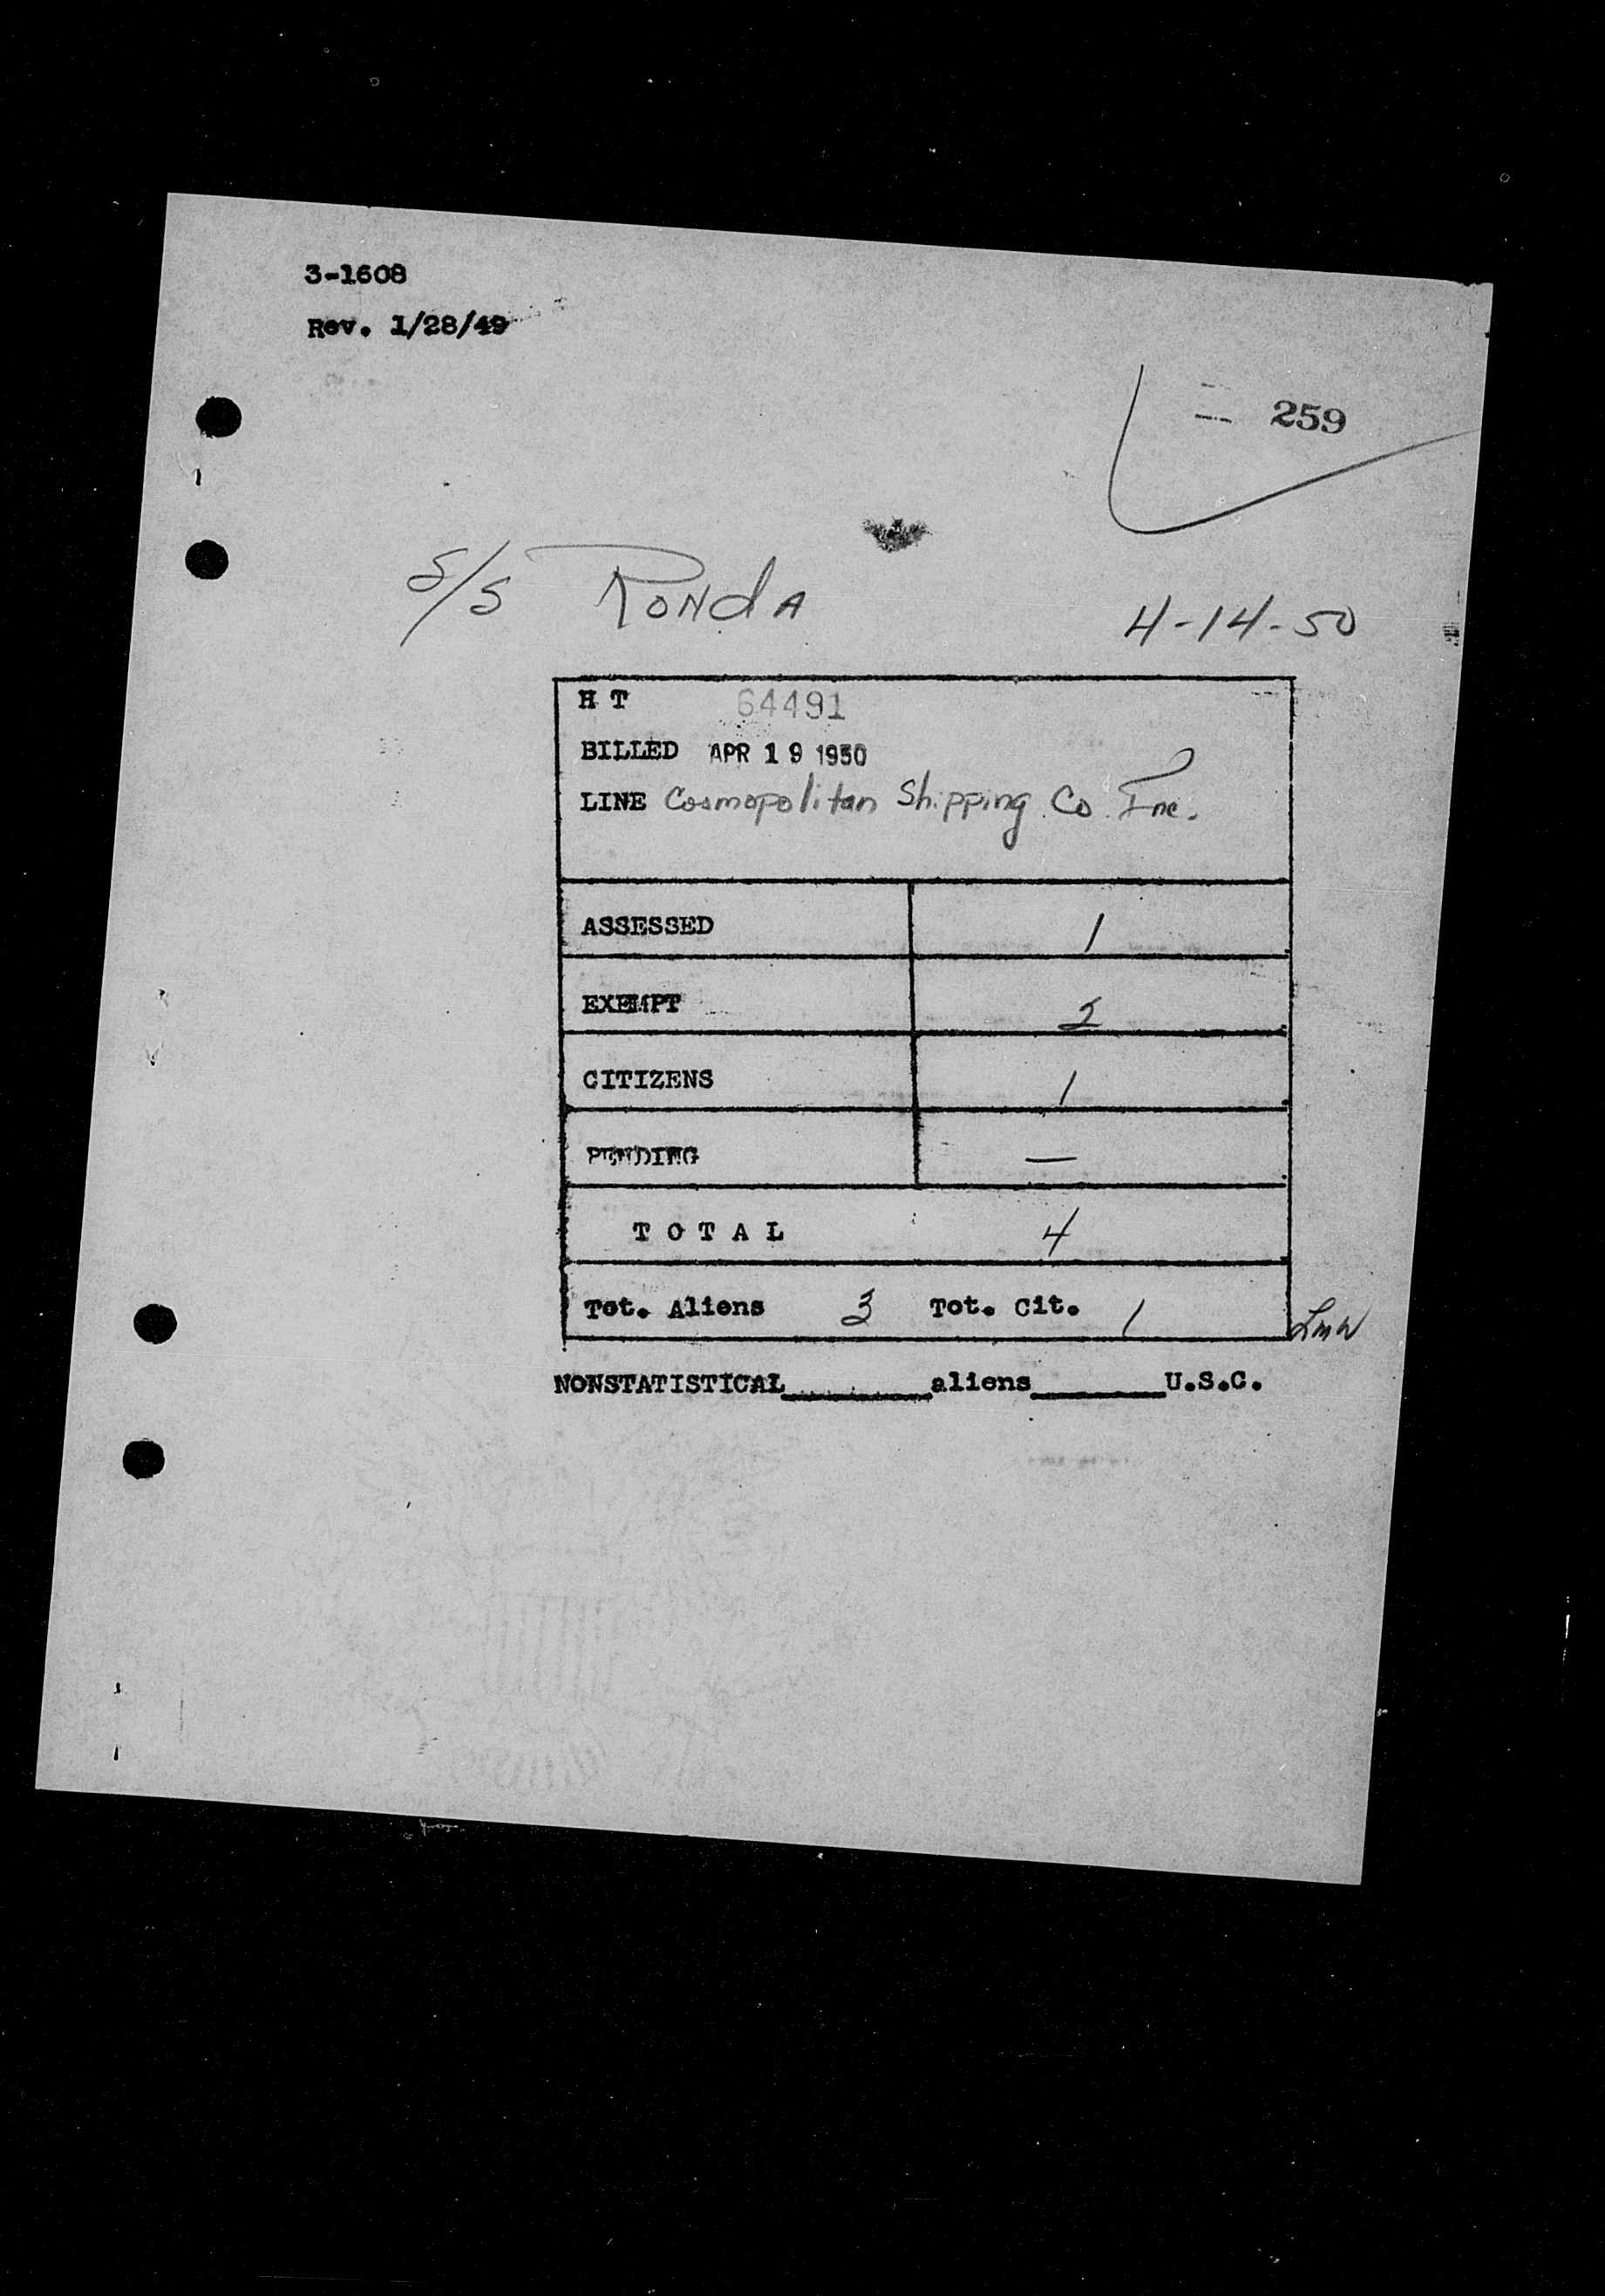 3-1608
Rev. 1/28/49
259
S/S RONdA 4-14-50
H T 64491
BILLED APR 19 1950
LINE Cosmopolitan Shipping Co. Inc.
ASSESSED 1
EXEMPT 2
CITIZENS 1
PENDING —
T O T A L 4
Tot. Aliens 3 Tot. Cit. 1 LMW
NONSTATISTICAL________aliens_______U.S.C.